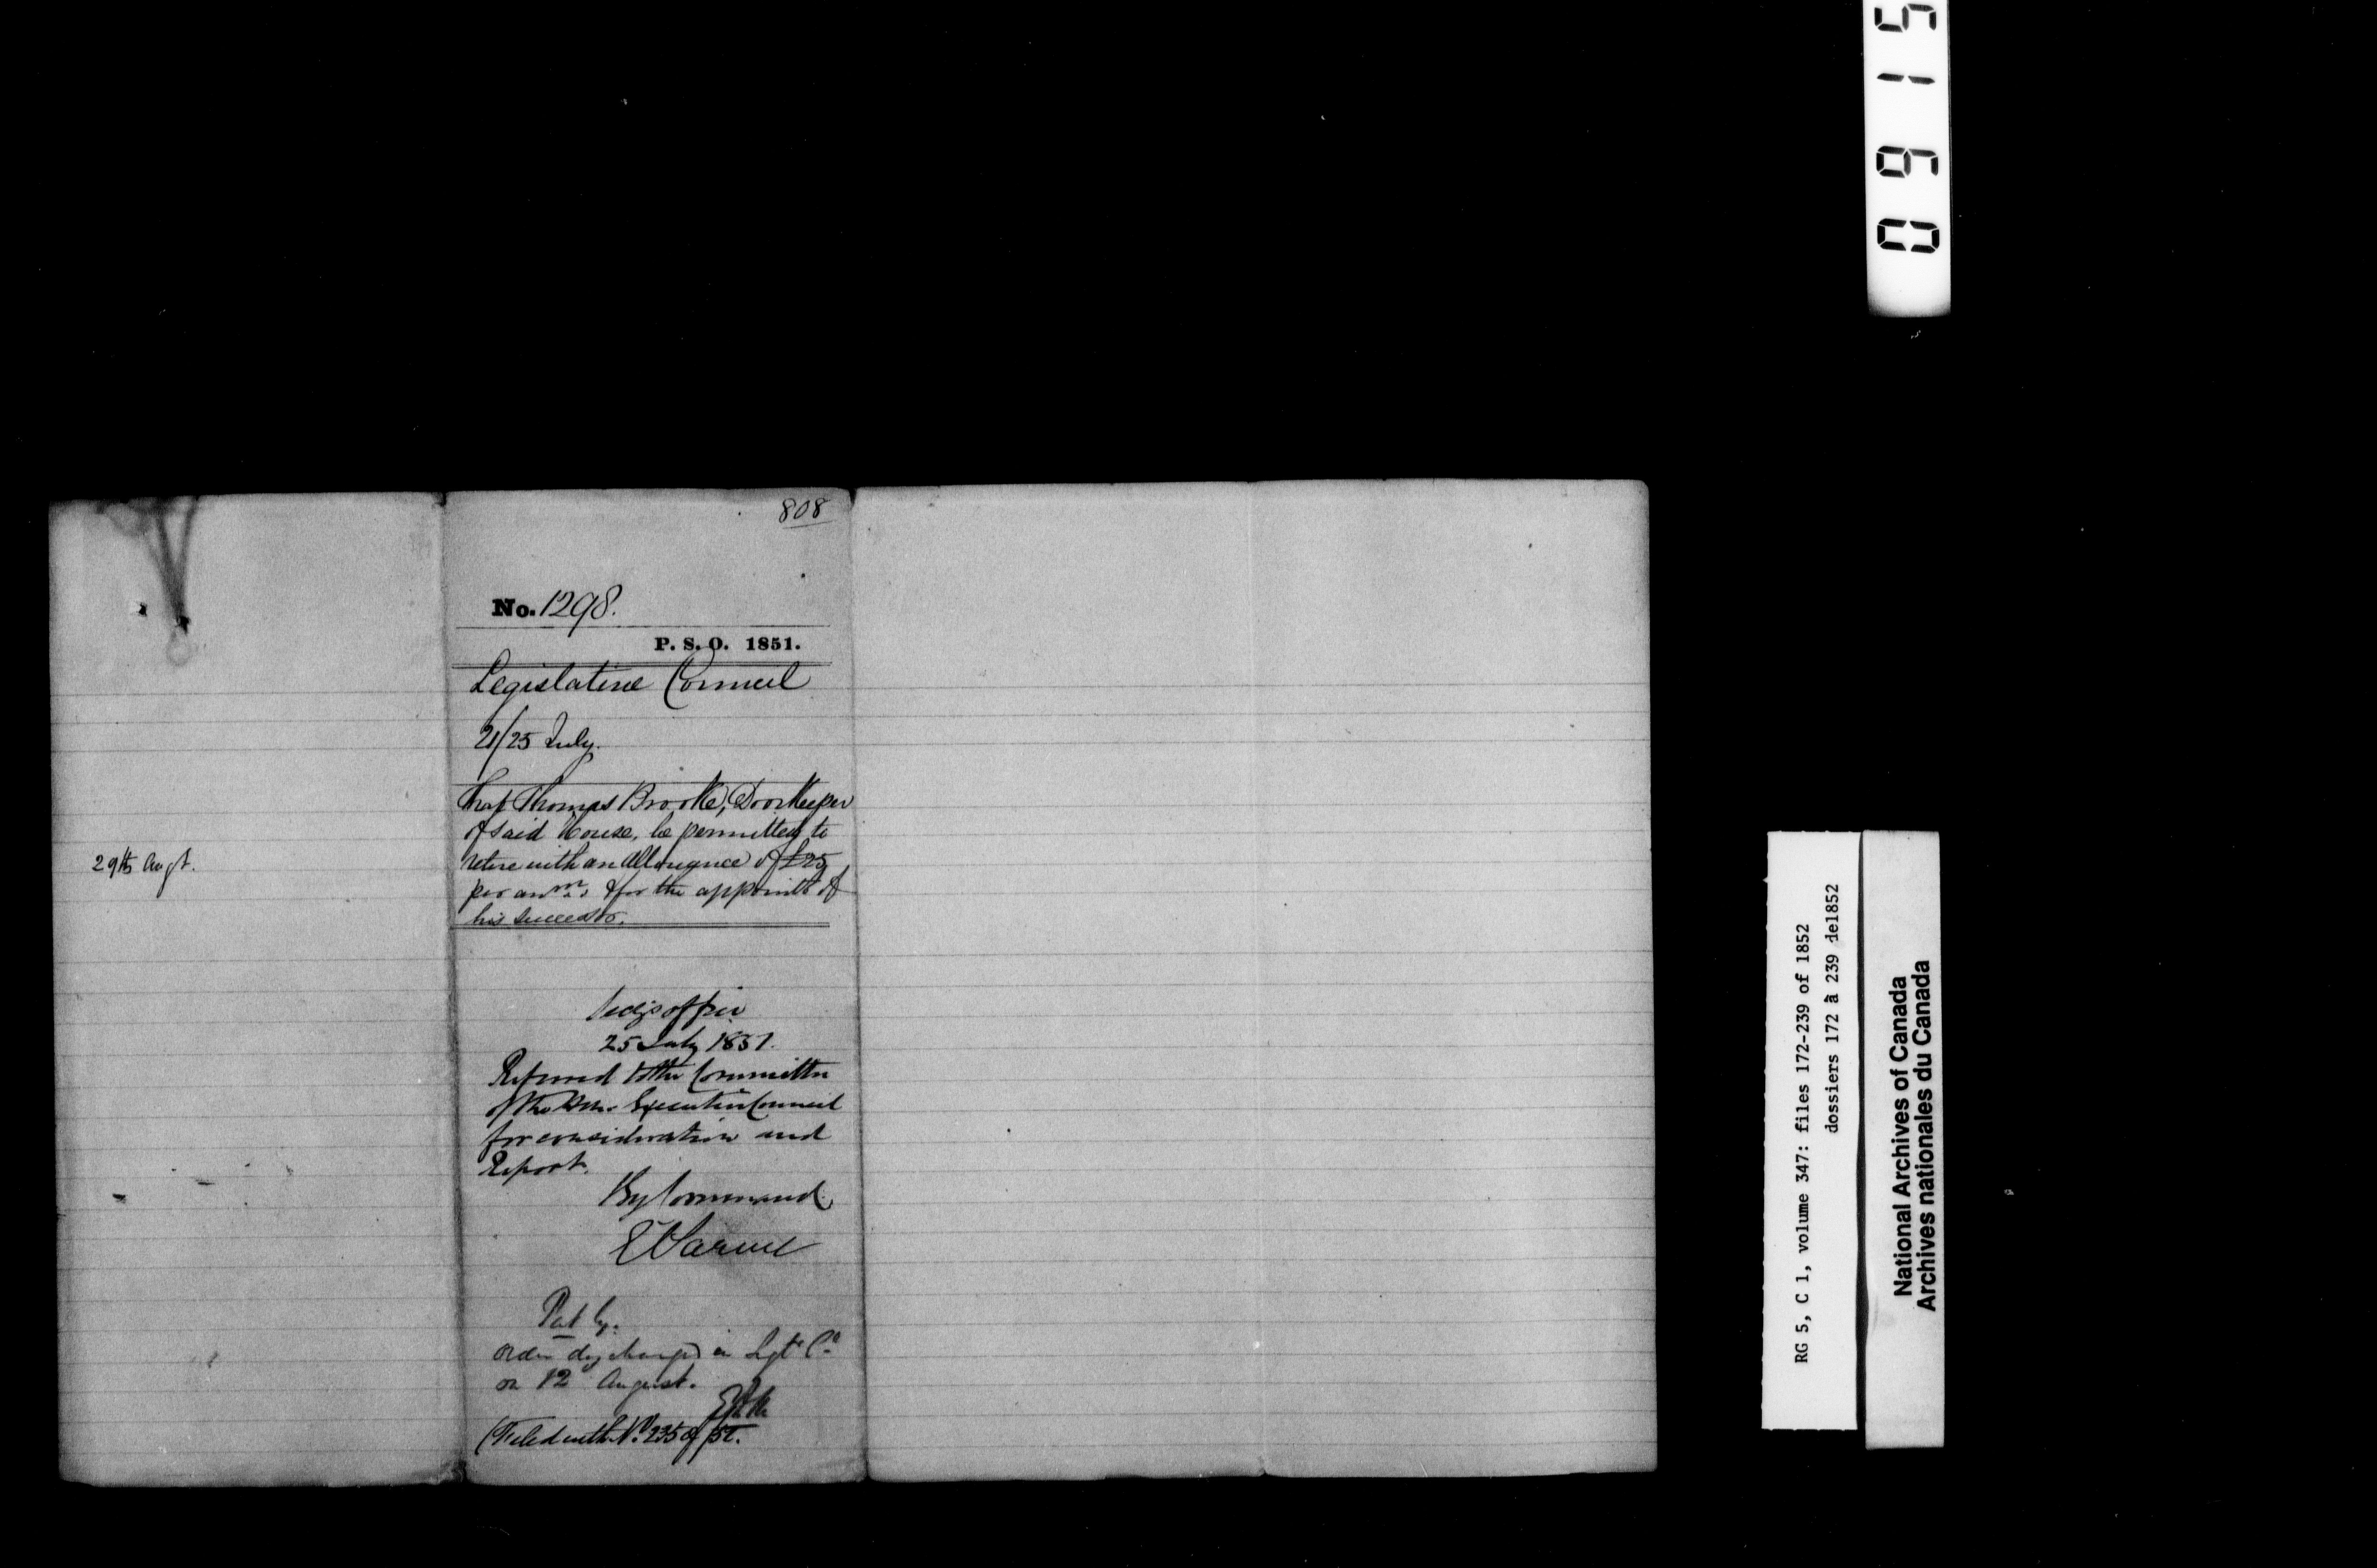 0915
808
No. 1298.
P. S. O. 1851.
Legislative Council
21/25 July.
That Thomas Brooke, Doorkeeper
of said House, be permitted to
retire with an allowance of £25
per anm. & for the appointt of
his successor.
29th Augt.
Secy's office
25 July 1851.
Referred to the Committee
of the Hon. Executive Council
for consideration and
Report.
By Command
Put by.
order discharged in Legt. Cl.
on 12 August.
(Filed with No. 235 of /52.
RG 5, C 1, volume 347: files 172-239 of 1852
dossiers 172 à 239 de1852
National Archives of Canada
Archives nationales du Canada